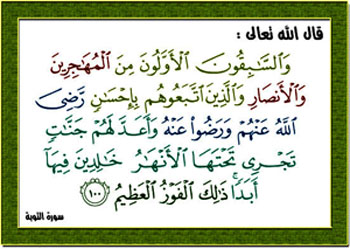 قال الله تعالى :
وَالسَّابِقُونَ الْأَوَّلُونَ مِنَ الْمُهَاجِرِينَ
وَالْأَنصَارِ وَالَّذِينَ اتَّبَعُوهُم بِإِحْسَانٍ رَّضِيَ
اللَّهُ عَنْهُمْ وَرَضُوا عَنْهُ وَأَعَدَّ لَهُمْ جَنَّاتٍ
تَجْرِي تَحْتَهَا الْأَنْهَارُ خَالِدِينَ فِيهَا
أَبَدًا ۚ ذَٰلِكَ الْفَوْزُ الْعَظِيمُ ١٠٠
سورة التوبة